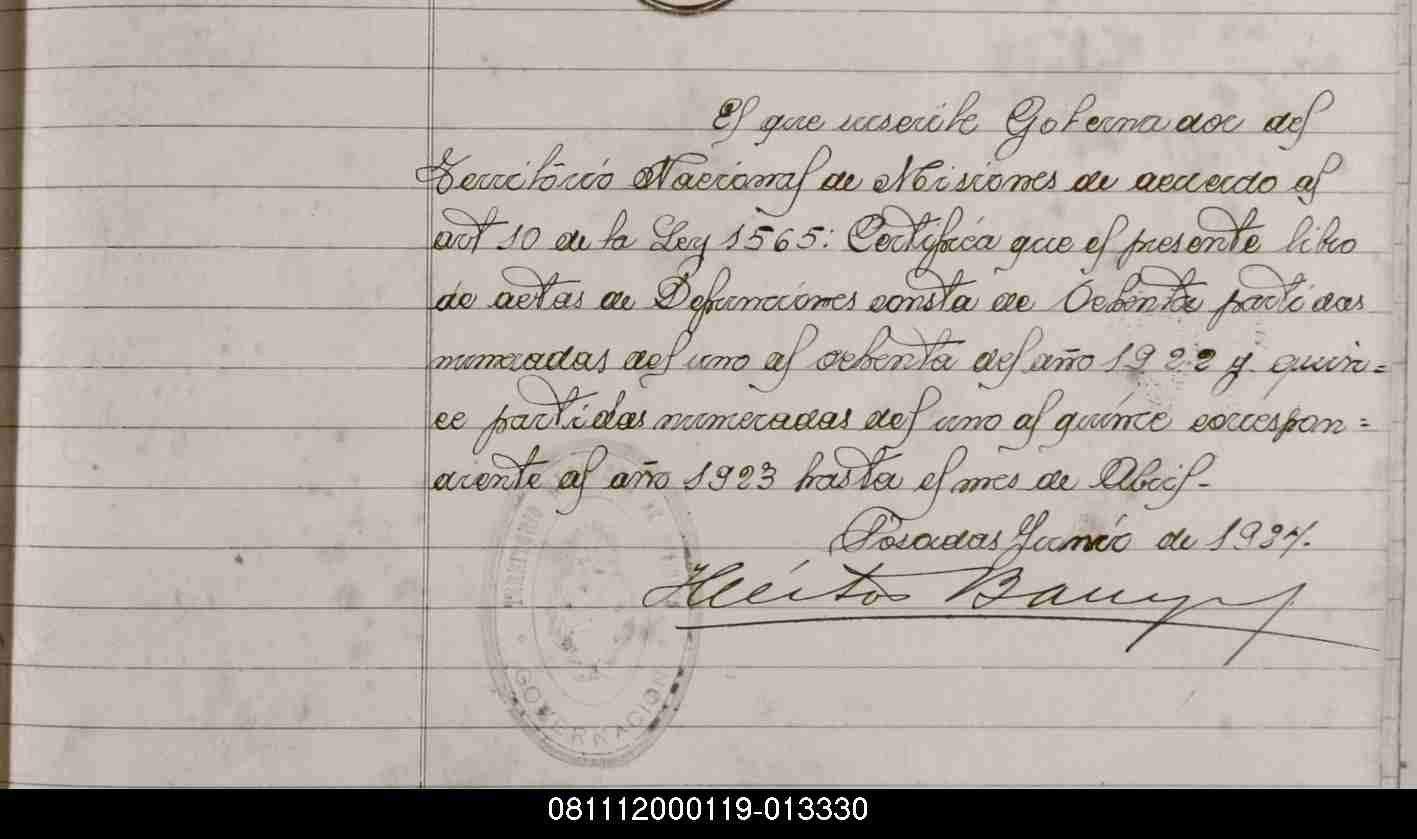 El que suscribe Gobernador del
Território Nacional de Misiones de acuerdo al
art 10 de la Ley 1565: Certifica que el presente libro
de actas de Defunciones consta de Ochenta partidas
numeradas del uno al ochenta del año 1922 y quin=
ce partidas numeradas del uno al quince correspon=
diente al año 1923 hasta el mes de Abril-
Posadas Junio de 1924.
Héctor
TERRITORIO DE
GOVERNACION
081112000119-013330